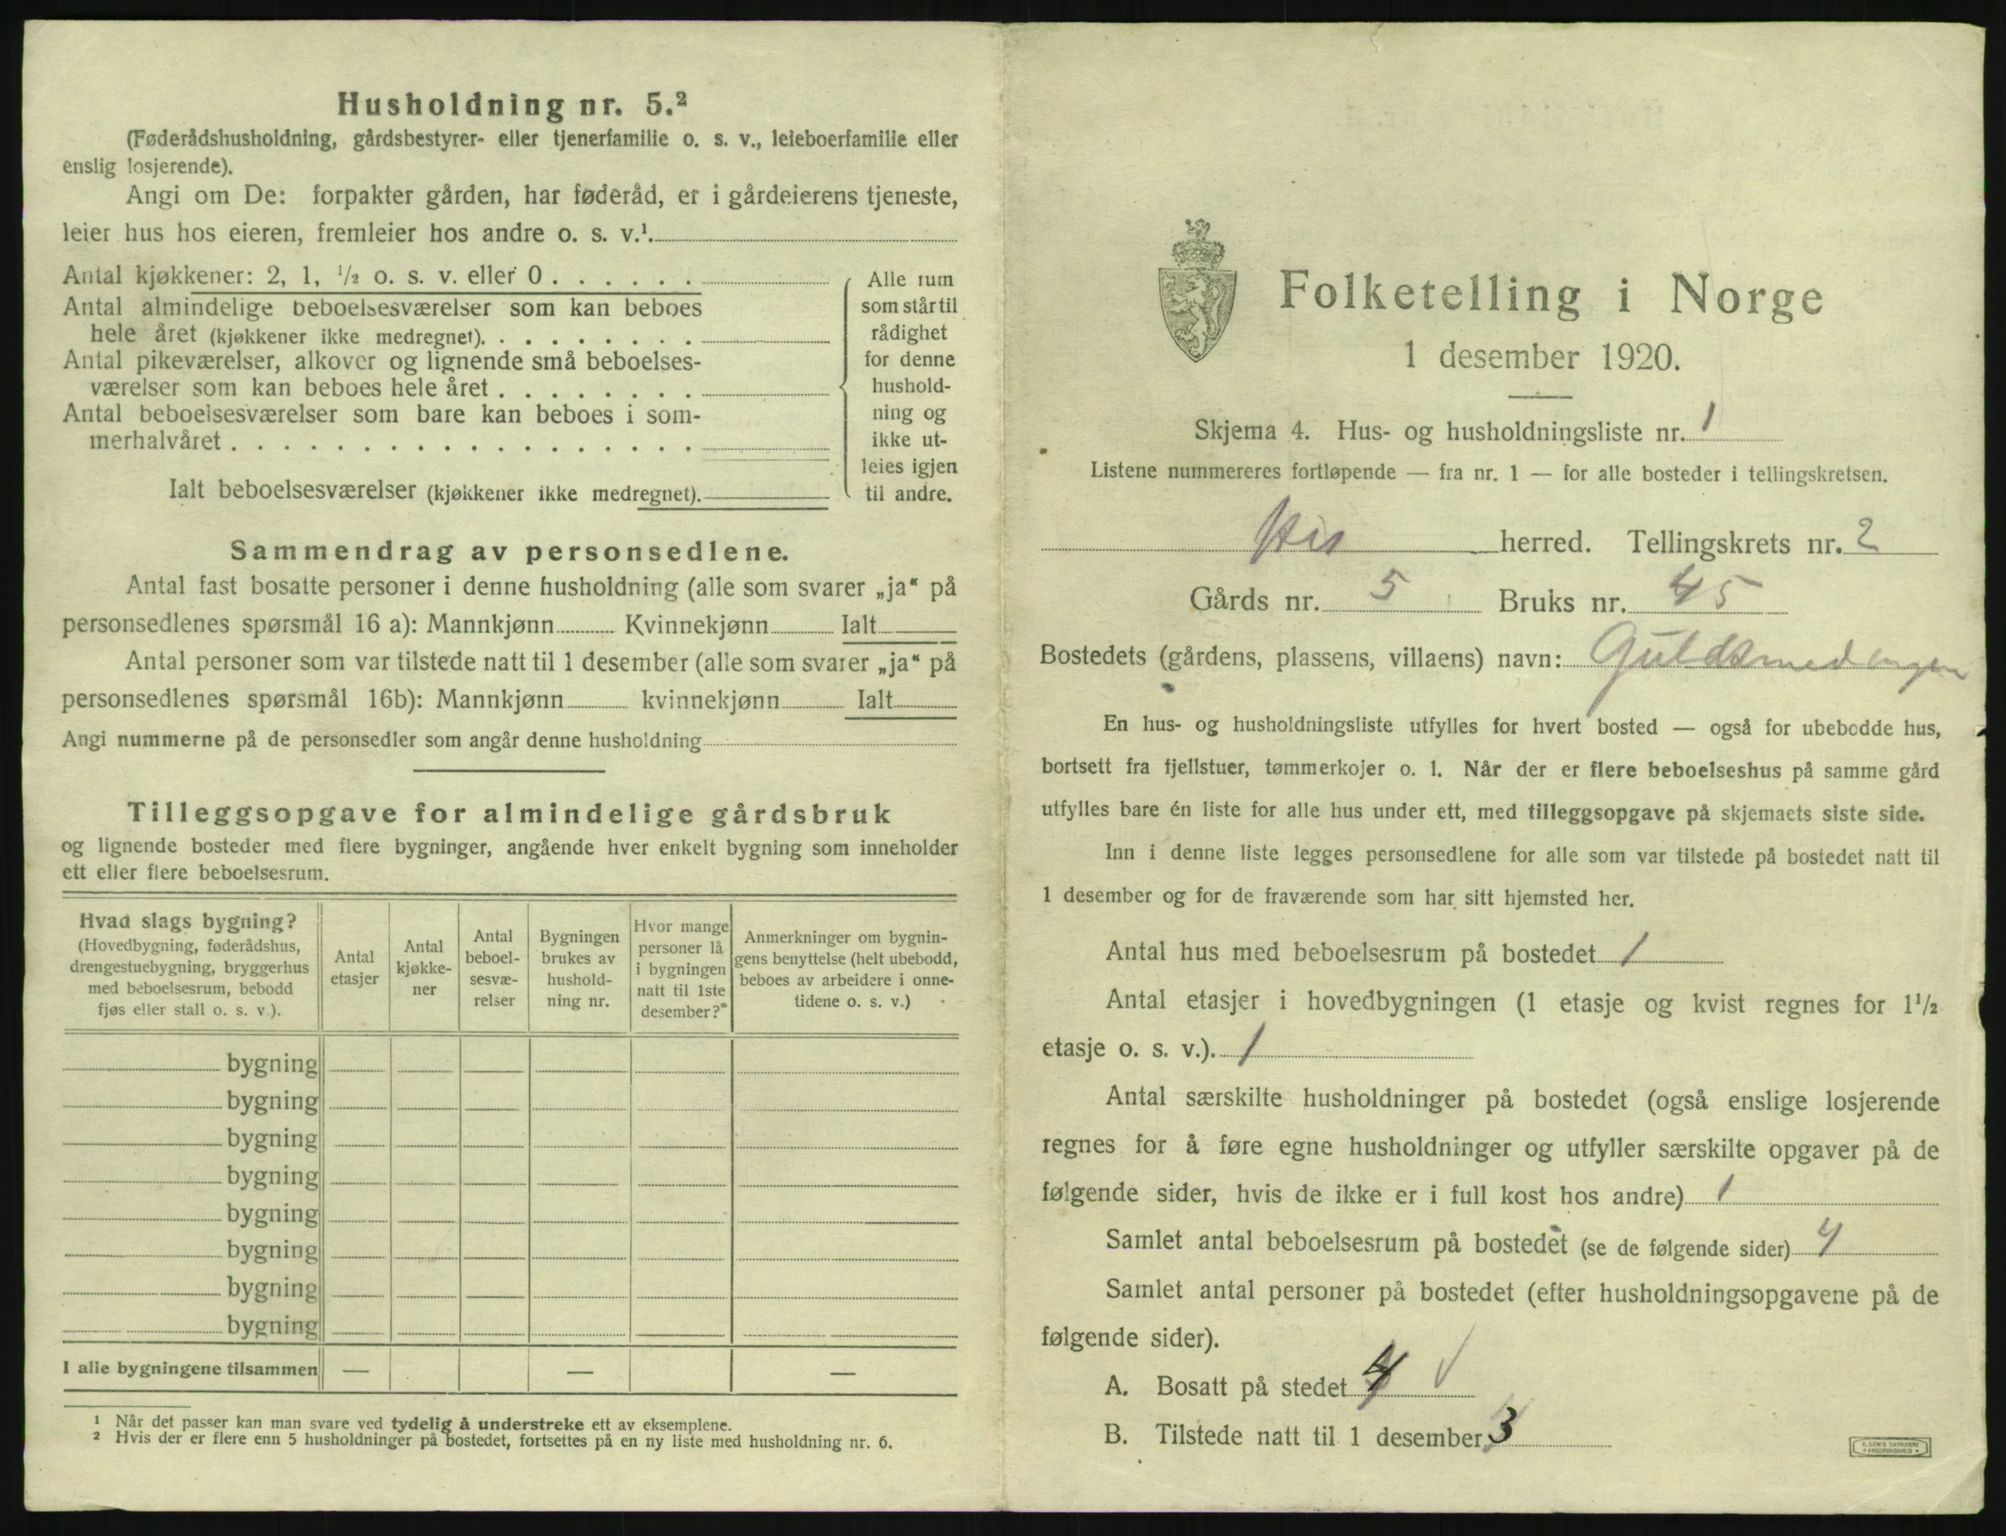 Husholdning nr. 5.²
(Føderådshusholdning, gårdsbestyrer- eller tjenerfamilie o. s. v., leieboerfamilie eller
enslig losjerende).
Angi om De: forpakter gården, har føderåd, er i gårdeierens tjeneste,
leier hus hos eieren, fremleier hos andre o. s. v.¹
Antal kjøkkener: 2, 1, ½ o. s. v. eller 0 . . . . . .
Antal almindelige beboelsesværelser som kan beboes
hele året (kjøkkener ikke medregnet). . . . . . . . .
Antal pikeværelser, alkover og lignende små beboelses-
værelser som kan beboes hele året . . . . . . . .
Antal beboelsesværelser som bare kan beboes i som-
merhalvåret . . . . . . . . . . . . . . . . . .
Ialt beboelsesværelser (kjøkkener ikke medregnet).
Alle rum
som står til
rådighet
for denne
hushold-
ning og
ikke ut-
leies igjen
til andre.
Sammendrag av personsedlene.
Antal fast bosatte personer i denne husholdning (alle som svarer „ja“ på
personsedlenes spørsmål 16 a): Mannkjønn Kvinnekjønn Ialt
Antal personer som var tilstede natt til 1 desember (alle som svarer „ja“ på
personsedlenes spørsmål 16b): Mannkjønn kvinnekjønn Ialt
Angi nummerne på de personsedler som angår denne husholdning
Tilleggsopgave for almindelige gårdsbruk
og lignende bosteder med flere bygninger, angående hver enkelt bygning som inneholder
ett eller flere beboelsesrum.
Hvad slags bygning?
(Hovedbygning, føderådshus,
drengestuebygning, bryggerhus
med beboelsesrum, bebodd
fjøs eller stall o. s. v.).
Antal
etasjer
Antal
kjøkke-
ner
Antal
beboel-
sesvæ-
relser
Bygningen
brukes av
hushold-
ning nr.
Hvor mange
personer lå
i bygningen
natt til 1ste
desember?
Anmerkninger om bygnin-
gens benyttelse (helt ubebodd,
beboes av arbeidere i onne-
tidene o. s. v.)
bygning
bygning
bygning
bygning
bygning
bygning
bygning
bygning
I alle bygningene tilsammen — — —
¹ Når det passer kan man svare ved tydelig å understreke ett av eksemplene.
² Hvis der er flere enn 5 husholdninger på bostedet, fortsettes på en ny liste med husholdning nr. 6.
Folketelling i Norge
1 desember 1920.
Skjema 4. Hus- og husholdningsliste nr. 1
Listene nummereres fortløpende — fra nr. 1 — for alle bosteder i tellingskretsen.
His herred. Tellingskrets nr. 2
Gårds nr. 5 Bruks nr. 45
Bostedets (gårdens, plassens, villaens) navn: Guldsmedengen
En hus- og husholdningsliste utfylles for hvert bosted — også for ubebodde hus,
bortsett fra fjellstuer, tømmerkojer o. l. Når der er flere beboelseshus på samme gård
utfylles bare én liste for alle hus under ett, med tilleggsopgave på skjemaets siste side.
Inn i denne liste legges personsedlene for alle som var tilstede på bostedet natt til
1 desember og for de fraværende som har sitt hjemsted her.
Antal hus med beboelsesrum på bostedet 1
Antal etasjer i hovedbygningen (1 etasje og kvist regnes for 1½
etasje o. s. v.). 1
Antal særskilte husholdninger på bostedet (også enslige losjerende
regnes for å føre egne husholdninger og utfyller særskilte opgaver på de
følgende sider, hvis de ikke er i full kost hos andre) 1
Samlet antal beboelsesrum på bostedet (se de følgende sider) 4
Samlet antal personer på bostedet (efter husholdningsopgavene på de
følgende sider).
A. Bosatt på stedet 4
B. Tilstede natt til 1 desember 3